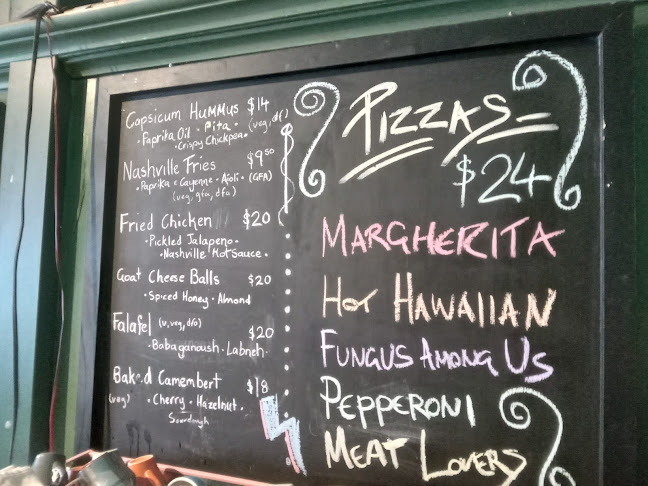 Capsicum Hummus $14
• Paprika Oil • Pita • (veg, df)
• Crispy Chickpea •
Nashville Fries $9.50
• Paprika & Cayenne • Aioli • (GFA)
(veg, gfa, dfa)
Fried Chicken $20
• Pickled Jalapeno •
• Nashville Hot Sauce •
Goat Cheese Balls $20
• Spiced Honey • Almond
Falafel (v, veg, dfo) $20
• Babaganoush • Labneh •
Baked Camembert $18
(veg) • Cherry • Hazelnut •
Sourdough
PIZZAS
$24
MARGHERITA
HOT HAWAIIAN
FUNGUS AMONG US
PEPPERONI
MEAT LOVERS